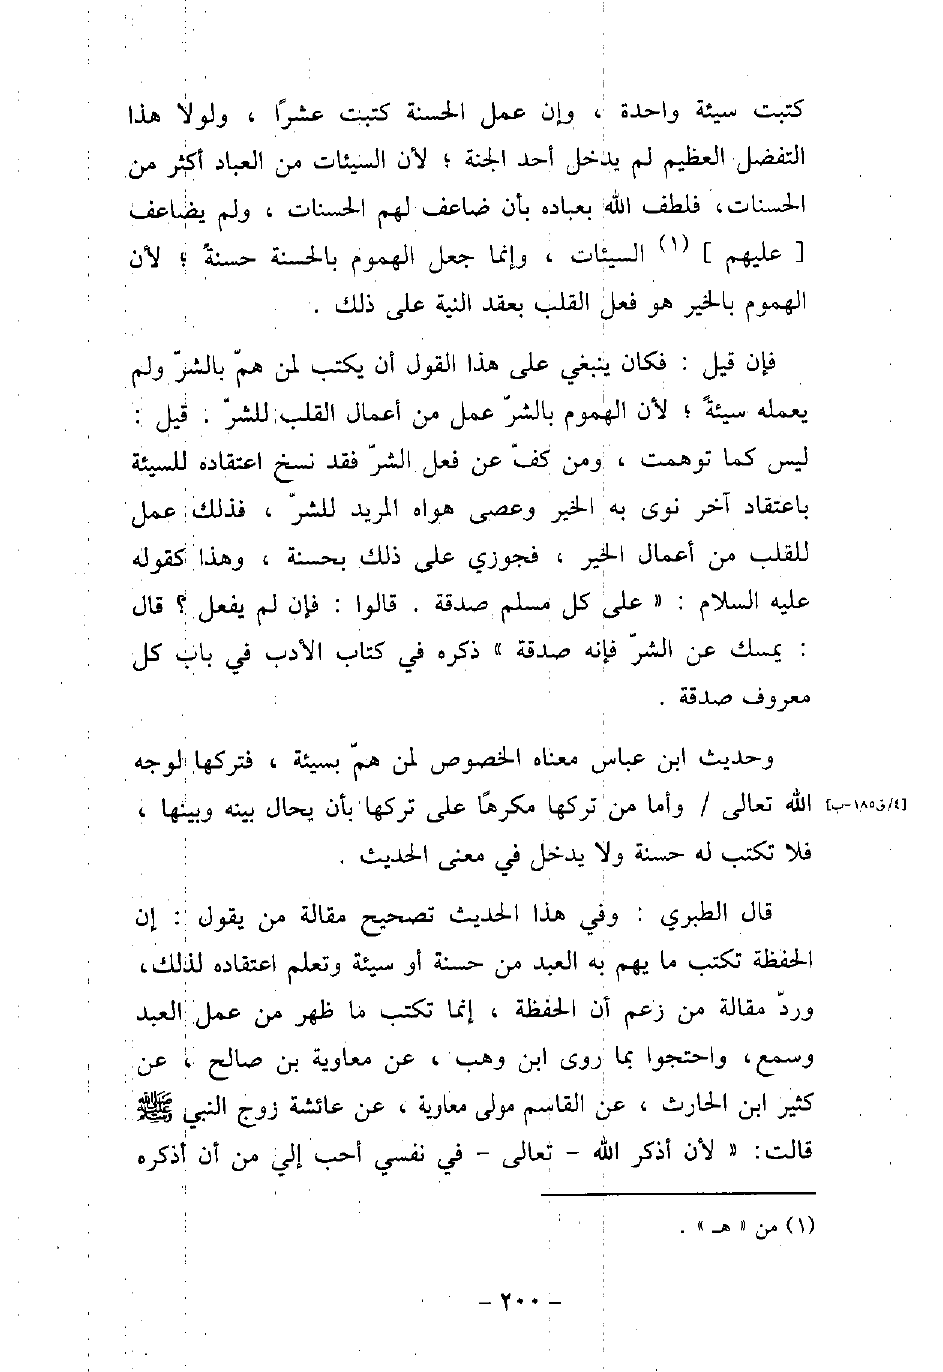 كتبت سيئة واحدة ، وإن عمل الحسنة كتبت عشرًا ، ولولا هذا
التفضل العظيم لم يدخل أحد الجنة ؛ لأن السيئات من العباد أكثر من
الحسنات، فلطف الله بعباده بأن ضاعف لهم الحسنات ، ولم يضاعف
[ عليهم ] (١) السيئات ، وإنما جعل الهموم بالحسنة حسنةً ؛ لأن
الهموم بالخير هو فعل القلب بعقد النية على ذلك .
فإن قيل : فكان ينبغي على هذا القول أن يكتب لمن همّ بالشرّ ولم
يعمله سيئةً ؛ لأن الهموم بالشرّ عمل من أعمال القلب للشرّ . قيل :
ليس كما توهمت ، ومن كفّ عن فعل الشرّ فقد نسخ اعتقاده للسيئة
باعتقاد آخر نوى به الخير وعصى هواه المريد للشرّ ، فذلك عمل
للقلب من أعمال الخير ، فجوزي على ذلك بحسنة ، وهذا كقوله
عليه السلام : « على كل مسلم صدقة . قالوا : فإن لم يفعل ؟ قال
: يمسك عن الشرّ فإنه صدقة » ذكره في كتاب الأدب في باب كل
معروف صدقة .
وحديث ابن عباس معناه الخصوص لمن همّ بسيئة ، فتركها لوجه
الله تعالى / وأما من تركها مكرهًا على تركها بأن يحال بينه وبينها ، [٤/ق١٨٥-ب]
فلا تكتب له حسنة ولا يدخل في معنى الحديث .
قال الطبري : وفي هذا الحديث تصحيح مقالة من يقول : إن
الحفظة تكتب ما يهم به العبد من حسنة أو سيئة وتعلم اعتقاده لذلك،
وردّ مقالة من زعم أن الحفظة ، إنما تكتب ما ظهر من عمل العبد
وسمع، واحتجوا بما روى ابن وهب ، عن معاوية بن صالح ، عن
كثير ابن الحارث ، عن القاسم مولى معاوية ، عن عائشة زوج النبي ﷺ
قالت: « لأن أذكر الله - تعالى - في نفسي أحب إلي من أن أذكره
(١) من « هـ » .
- ٢٠٠ -